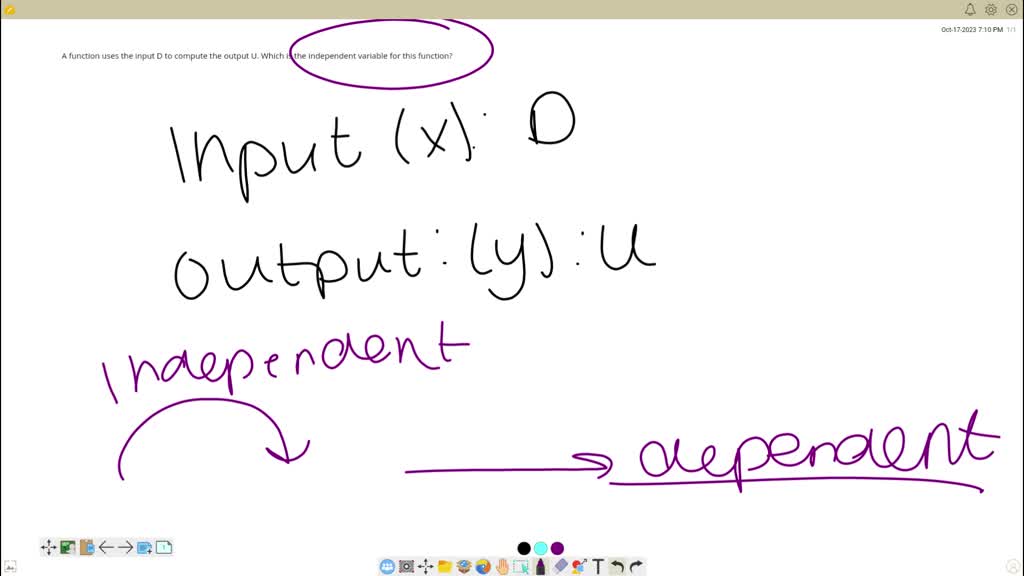 Oct-17-2023 7:10 PM 1/1
A function uses the input D to compute the output U. Which is the independent variable for this function?
Input (x): D
output: (y): U
independent
dependent